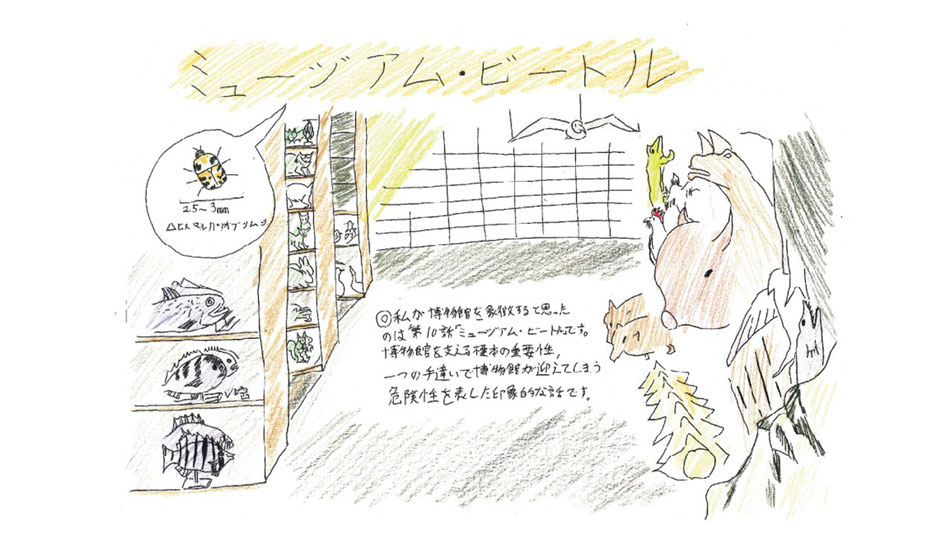 ミュージアム・ビートル
2.5～3mm
ヒメマルカツオブシムシ
◎私が博物館を象徴すると思った
のは第10話「ミュージアム・ビートル」です。
博物館を支える標本の重要性,
一つの手違いで博物館が迎えてしまう
危険性を表した印象的な話です。